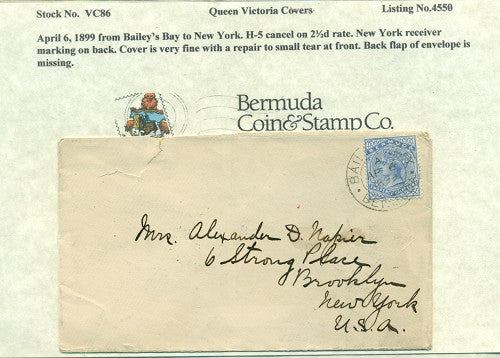 Stock No. VC86 Queen Victoria Covers Listing No.4550
April 6, 1899 from Bailey's Bay to New York. H-5 cancel on 2½d rate. New York receiver
marking on back. Cover is very fine with a repair to small tear at front. Back flap of envelope is
missing.
Bermuda
Coin&Stamp Co.
Mrs. Alexander D. Napier
6 Strong Place
Brooklyn
New York
U.S.A.